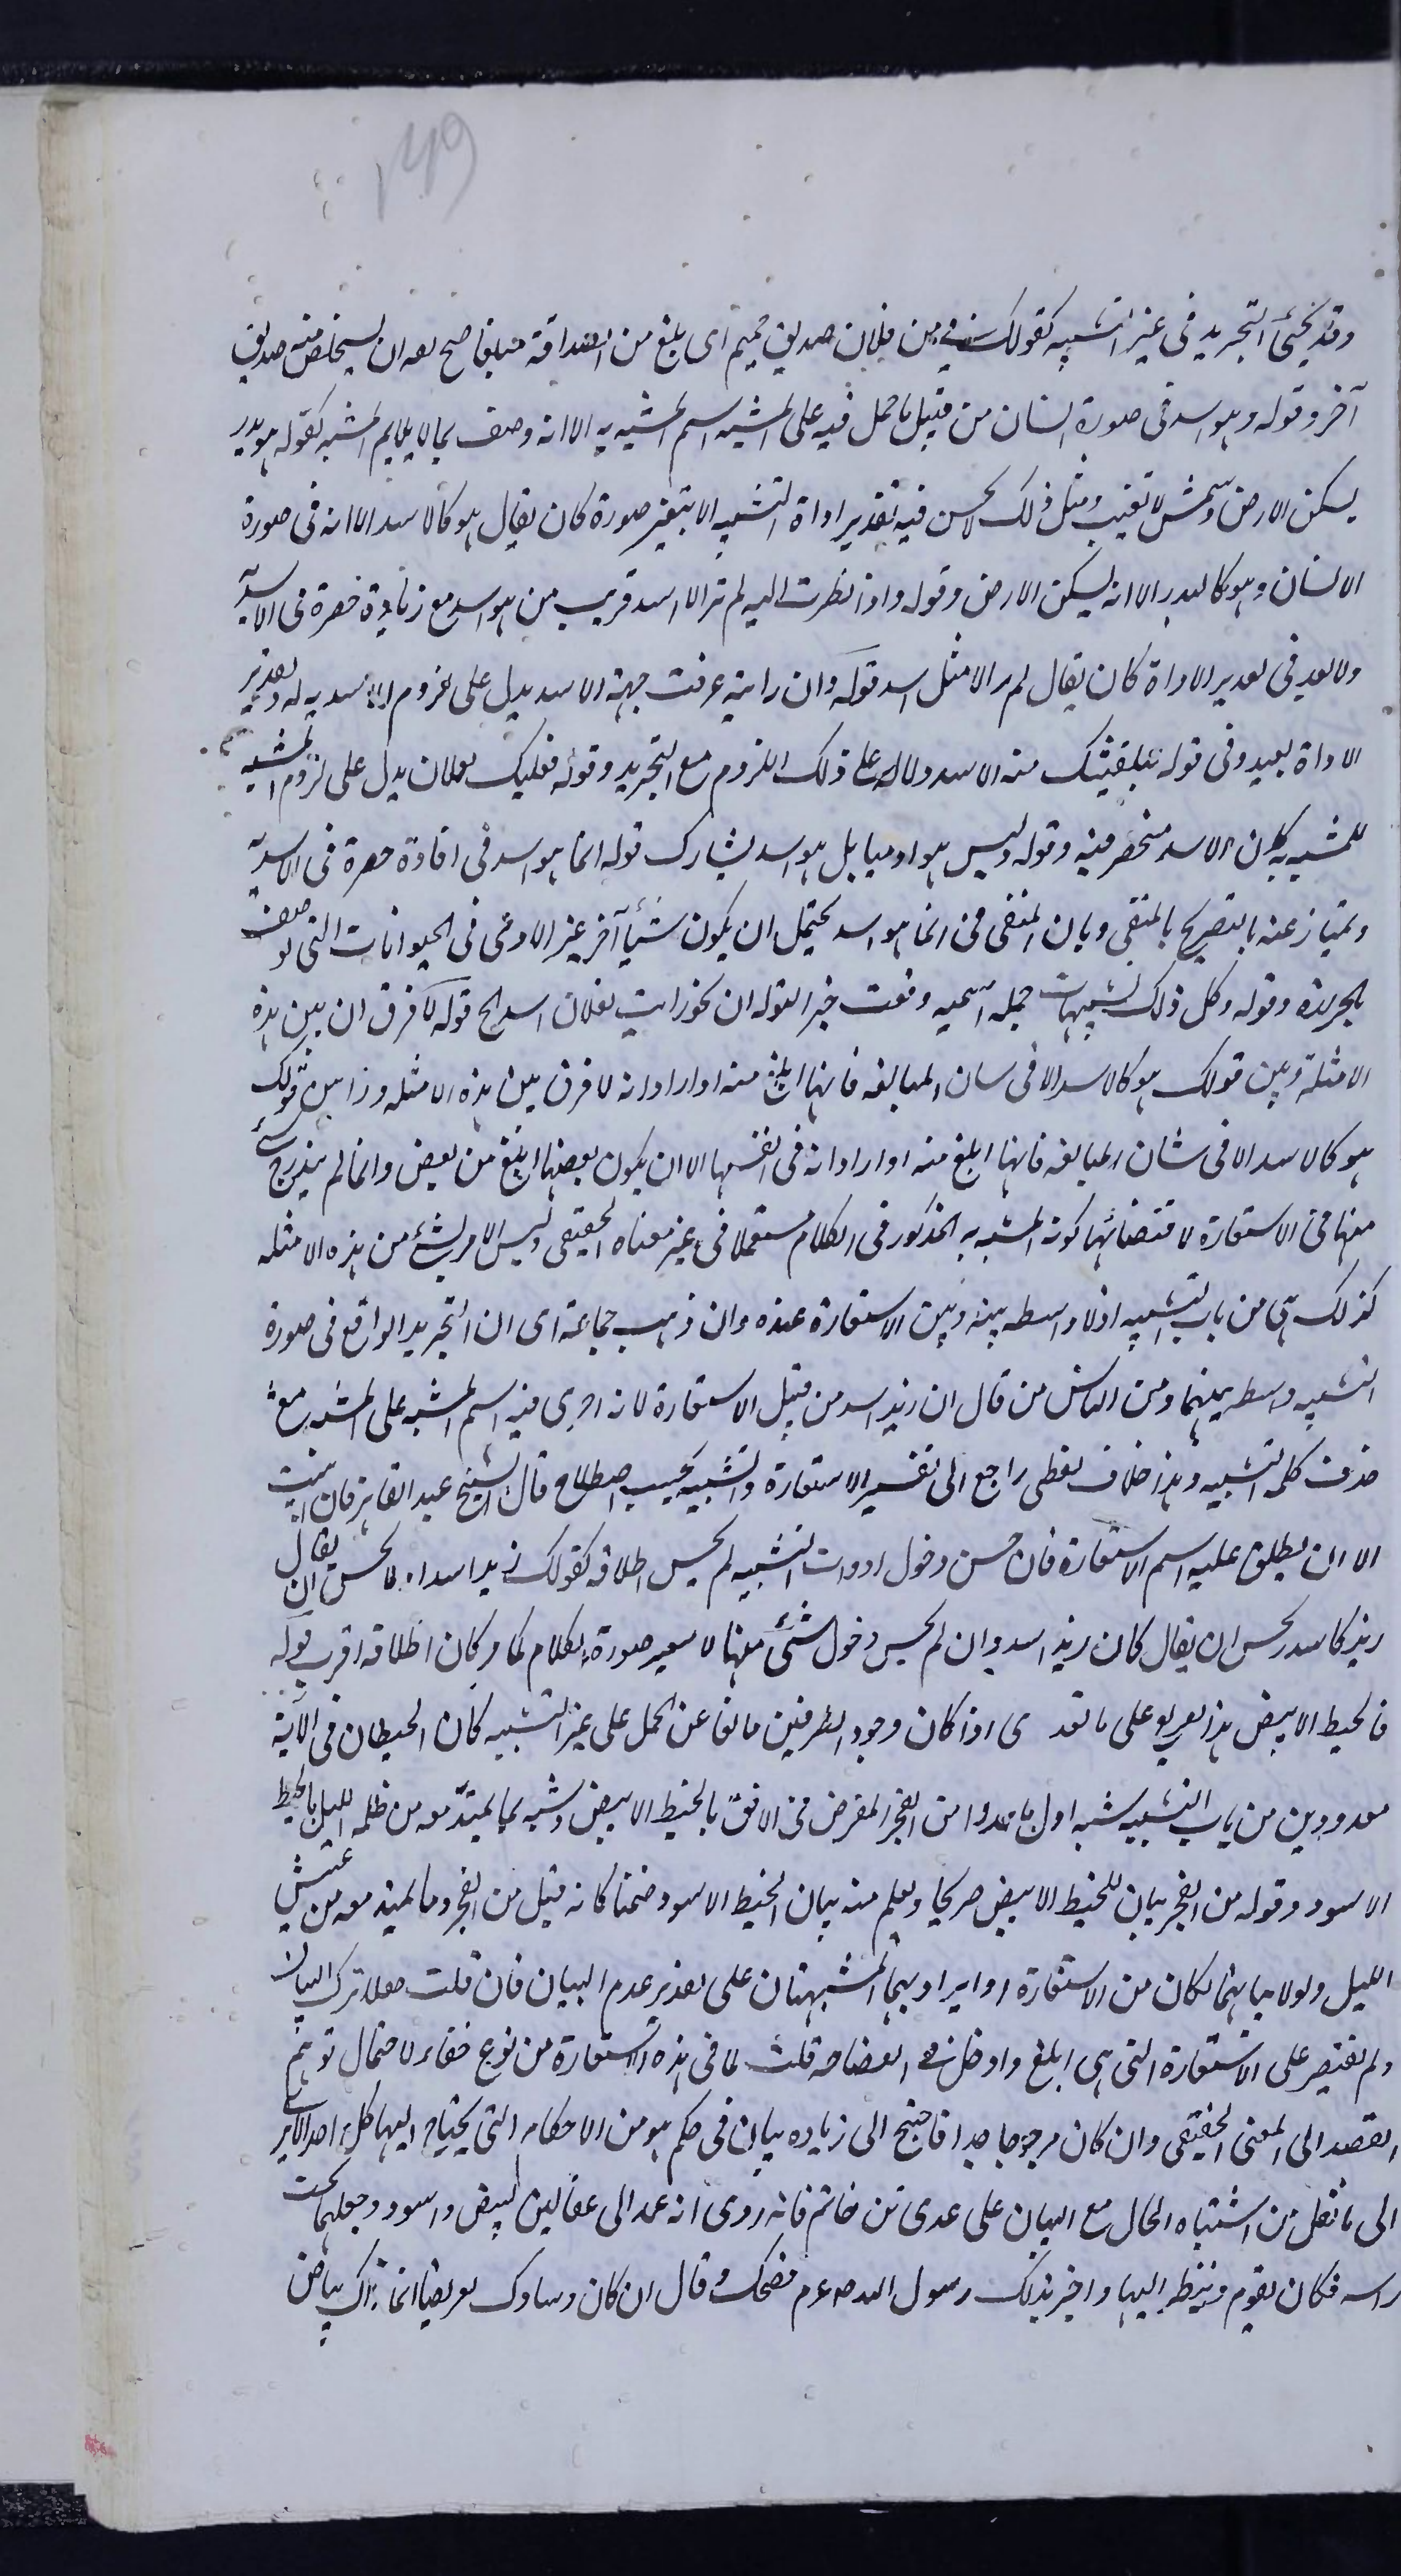 149
وقد يجئ التجريد فى غير التشبيه كقولك لى من فلان صديق حميم اى بلغ من الصداقة مبلغا صح معه ان يستخلص منه صديق
آخر وقوله وهو اسد فى صورة انسان من قبيل ما حمل فيه على المشبه اسم المشبه به الا انه وصف بما لا يلايم المشبه كقوله هو بدر
يسكن الارض وشمس لا تغيب ومثل ذلك لا يحسن فيه تقدير اداة التشبيه الا بتغير صورة كان يقال هو كالاسد الا انه فى صورة
الانسان وهو كالبدر الا انه يسكن الارض وقوله واذا نظرت اليه لم تر الا اسد قريب من هو اسد مع زيادة حصره فى الاسدية
ولا بعد فى تقدير الاداة كان يقال لم ير الا مثل اسد قوله وان رايته عرفت جبهة الاسد يدل على لزوم الاسدية له وتقدير
الاداة بعيد وفى قوله ليلقينك منه الاسد دلالة على ذلك اللزوم مع التجريد وقوله فعليك بفلان يدل على لزوم المشبه
للمشبه به كان الاسد منحصر فيه وقوله وليس هو ادميا بل هو اسد يشارك قوله انما هو اسد فى افادة حصره فى الاسدية
ويمتاز عنه بالتصريح بالمنفى وبان المنفى فى انما هو اسد يحتمل ان يكون شيأ آخر غير الادمى فى الحيوانات التى توصف
بالجراءة وقوله وكل ذلك تشبيهات جملة اسمية وقعت خبرا لقوله ان نحو رايت بفلان اسدا الخ قوله لا فرق ان بين هذه
الامثلة وبين قولك هو كالاسد الا فى شان المبالغة فانها ابلغ منه او اراد انه لا فرق بين هذه الامثلة وزا بين قولك
هو كالاسد الا فى شان المبالغة فانها ابلغ منه او اراد انه فى انفسها الا ان يكون بعضها ابلغ من بعض وانما لم يندرج شئ
منها فى الاستعارة لاقتضائها كونه المشبه به المذكور فى الكلام مستعملا فى غير معناه الحقيقى وليس الامر بشئ من هذه الامثلة
كذلك هى من باب التشبيه اذ لا واسطه بينه وبين الاستعارة عنده وان ذهب جماعة اى ان التجريد الواقع فى صورة
التشبيه واسطه بينهما ومن الناس من قال ان زيد اسد من قبيل الاستعارة لانه اجرى فيه اسم المشبه على المشبه مع
حذف كلمة التشبيه وهذا خلاف لفظى راجع الى تفسير الاستعارة والتشبيه بحسب اصطلاح قال الشيخ عبد القاهر فان ابيت
الا ان يطلق عليه اسم الاستعارة فان حسن دخول ادوات التشبيه لم يحسن اطلاقه كقولك زيد اسد اذ يحسن ان يقال
زيد كاسد ويحسن ان يقال كان زيد اسد وان لم يحسن دخول شئ منها لا بتغير صورة الكلام كما مر كان اطلاقه اقرب قوله
فالخيط الابيض هذا تفريع على ما تقد اى اذا كان وجود الطرفين مانعا عن الحمل على غير التشبيه كان الخيطان فى الآية
معدودين من باب التشبيه شبه اول ما يبدوا من الفجر المعترض فى الافق بالخيط الابيض وشبه بما يمتد معه من ظلمة الليل بالخيط
الاسود وقوله من الفجر بيان للخيط الابيض صريحا ويعلم منه بيان الخيط الاسود ضمنا كانه قيل من الفجر وما يمتد معه من غبش
الليل ولولا بيانهما لكان من الاستعارة او ايراد بهما المشبهتان على تقدير عدم البيان فان قلت هلا ترك البيان
ولم يقتصر على الاستعارة التى هى ابلغ وادخل فى الفصاحة قلت لما فى هذه الاستعارة من نوع خفاء لاحتمال توهم
القصد الى المعنى الحقيقى وان كان مرجوحا جدا فاحتيج الى زيادة بيان فى حكم هو من الاحكام التى يحتاج اليها كل احد الا يرى
الى ما نقل من اشتباه الحال مع البيان على عدى بن حاتم فانه روى انه عمد الى عقالين ابيض واسود وجعلهما تحت
راسه فكان يقوم وينظر اليهما واخبر بذلك رسول الله صلعم فضحك وقال ان كان وسادك لعريضا انما ذاك بياض